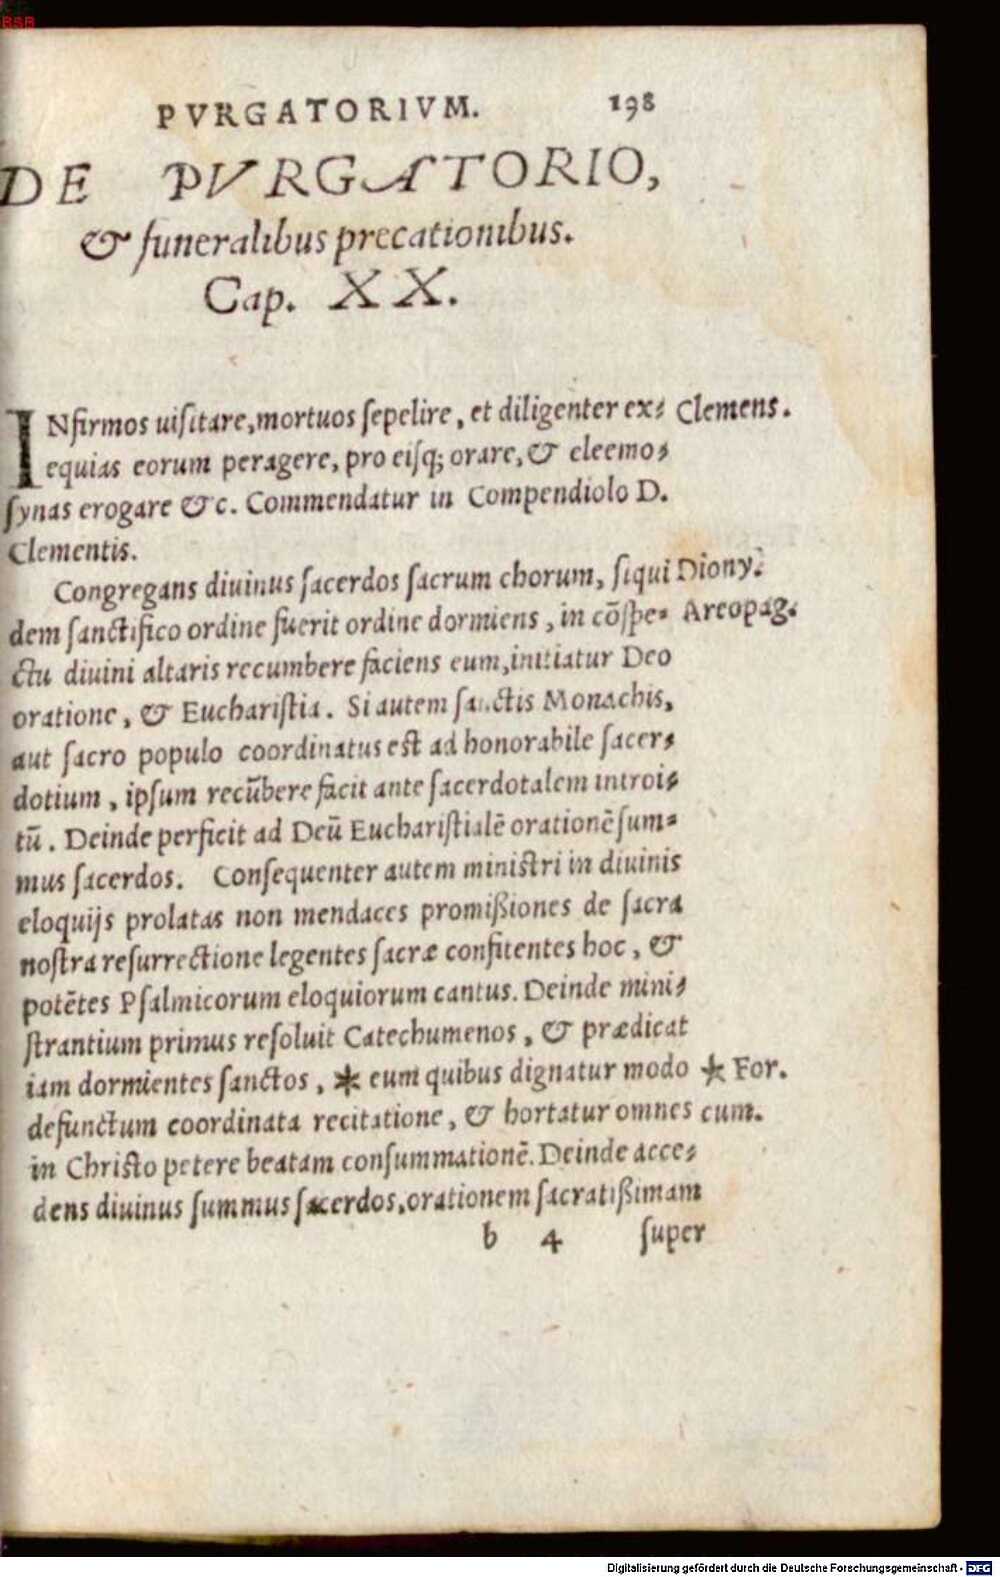 BSB
PVRGATORIVM. 198
DE PVRGATORIO,
& funeralibus precationibus.
Cap. XX.
INfirmos uiſitare, mortuos ſepelire, et diligenter ex⸗ Clemens.
equias eorum peragere, pro eiſq; orare, & eleemo⸗
ſynas erogare &c. Commendatur in Compendiolo D.
Clementis.
Congregans diuinus ſacerdos ſacrum chorum, ſiqui Diony:
dem ſanctifico ordine fuerit ordine dormiens, in cōſpe⸗ Areopag.
ctu diuini altaris recumbere faciens eum, initiatur Deo
oratione, & Euchariſtia. Si autem sanctis Monachis,
aut ſacro populo coordinatus eſt ad honorabile ſacer⸗
dotium, ipſum recūbere facit ante ſacerdotalem introi⸗
tū. Deinde perficit ad Deū Euchariſtialē orationē ſum⸗
mus ſacerdos. Conſequenter autem miniſtri in diuinis
eloquijs prolatas non mendaces promißiones de ſacra
noſtra reſurrectione legentes ſacræ confitentes hoc, &
potētes Pſalmicorum eloquiorum cantus. Deinde mini⸗
ſtrantium primus reſoluit Catechumenos, & prædicat
iam dormientes ſanctos, * eum quibus dignatur modo * For.
defunctum coordinata recitatione, & hortatur omnes cum.
in Chriſto petere beatam conſummationē. Deinde acce⸗
dens diuinus ſummus ſacerdos, orationem ſacratißimam
b 4 ſuper
Digitalisierung gefördert durch die Deutsche Forschungsgemeinschaft - DFG